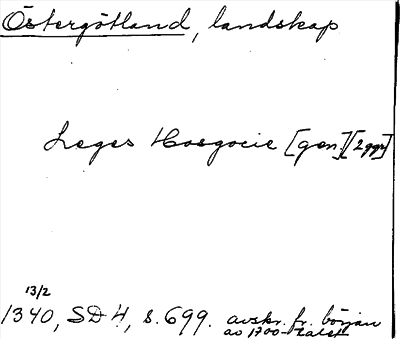 Östergötland, landskap
Leges Hosgocie [gen] [2ggr]
13/2
1340, SD 4, s. 699. avskr. fr. början
av 1700-talet